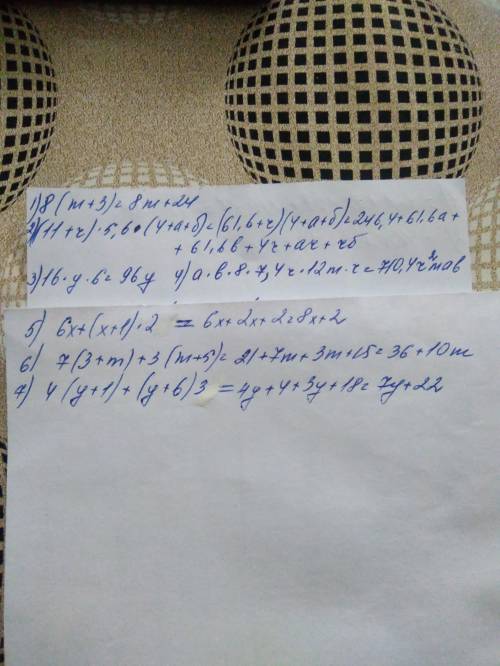 1) 8(m+3)=8m+24
2) (11+ч)·5,6·(4+а+б)=(61,6+ч)(4+а+б)=246,4+61.6а+
+61,6в+4ч+ач+чб
3) 16·у·6=96у 4) а·в·8·7,4ч·12m·ч=710,4ч²mав
5) 6x+(x+1)·2 = 6x+2x+2=8x+2
6) 7(3+m)+3(m+5)=21+7m+3m+15=36+10m
7) 4(y+1)+(y+6)3=4y+4+3y+18=7y+22